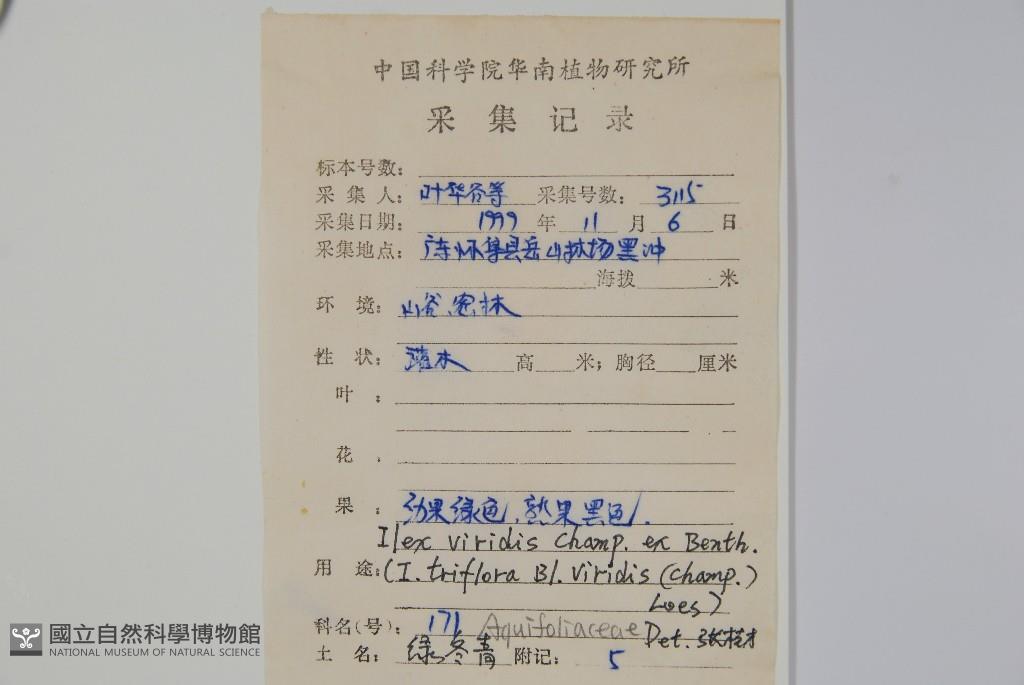 中国科学院华南植物研究所
采集记录
标本号数：
采集人：叶华谷等 采集号数：3115
采集日期：1999 年 11 月 6 日
采集地点：广东怀集县岳山林场黑冲
海拨 米
环境：山谷、密林
性状：灌木 高 米；胸径 厘米
叶：
花：
果：幼果绿色，熟果黑色.
Ilex viridis Champ. ex Benth.
用途：(I. triflora Bl. viridis (Champ.)
Loes)
科名(号)：171 Aquifoliaceae Det.
土名：绿冬青 附记： 5
國立自然科學博物館
NATIONAL MUSEUM OF NATURAL SCIENCE